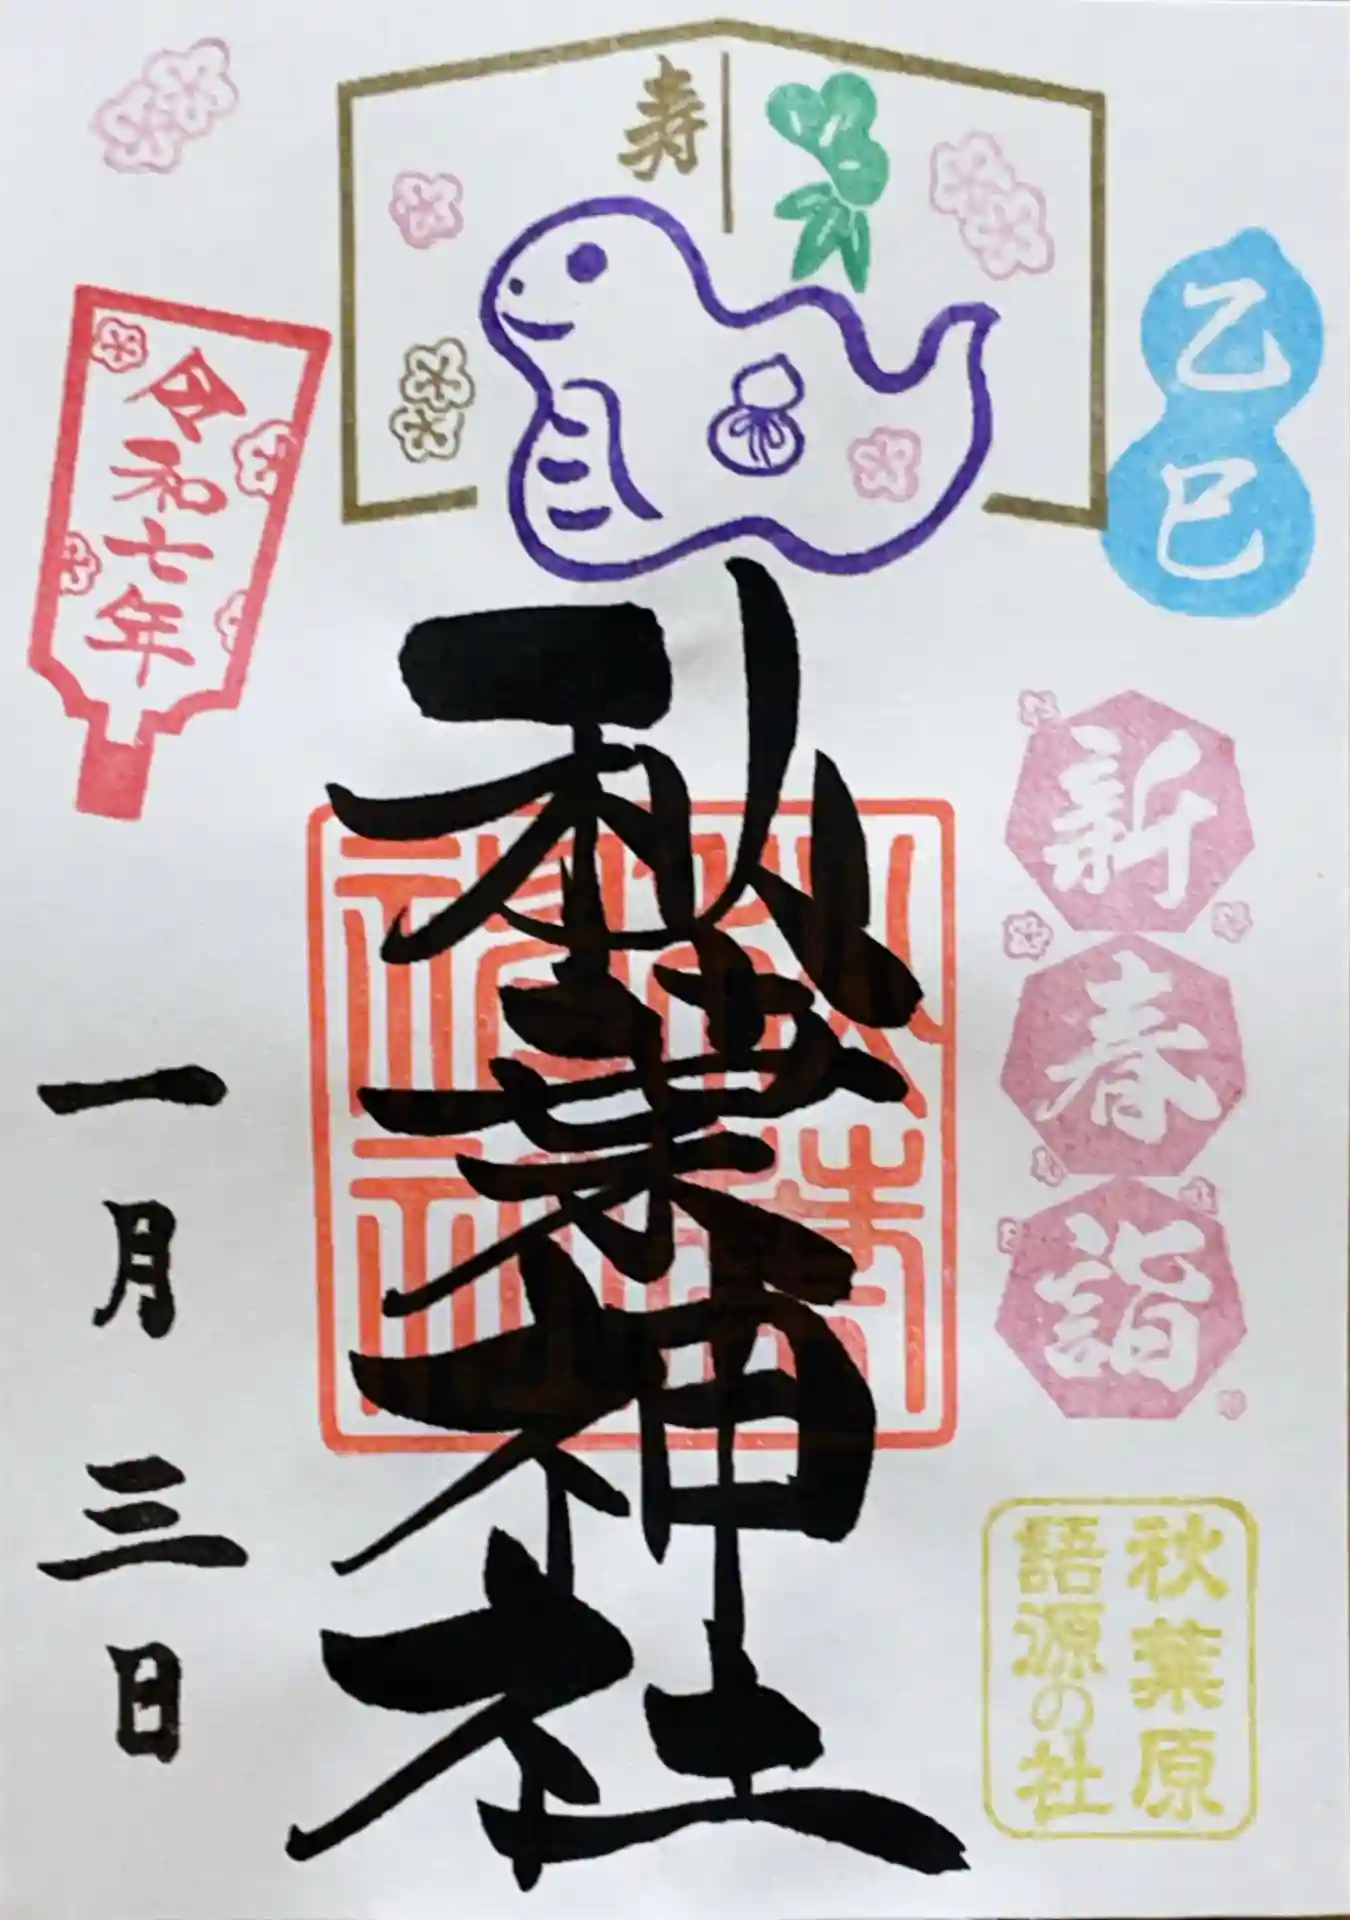 寿
乙巳
新春詣
秋葉原
語源の社
秋葉神社
令和七年
一月三日